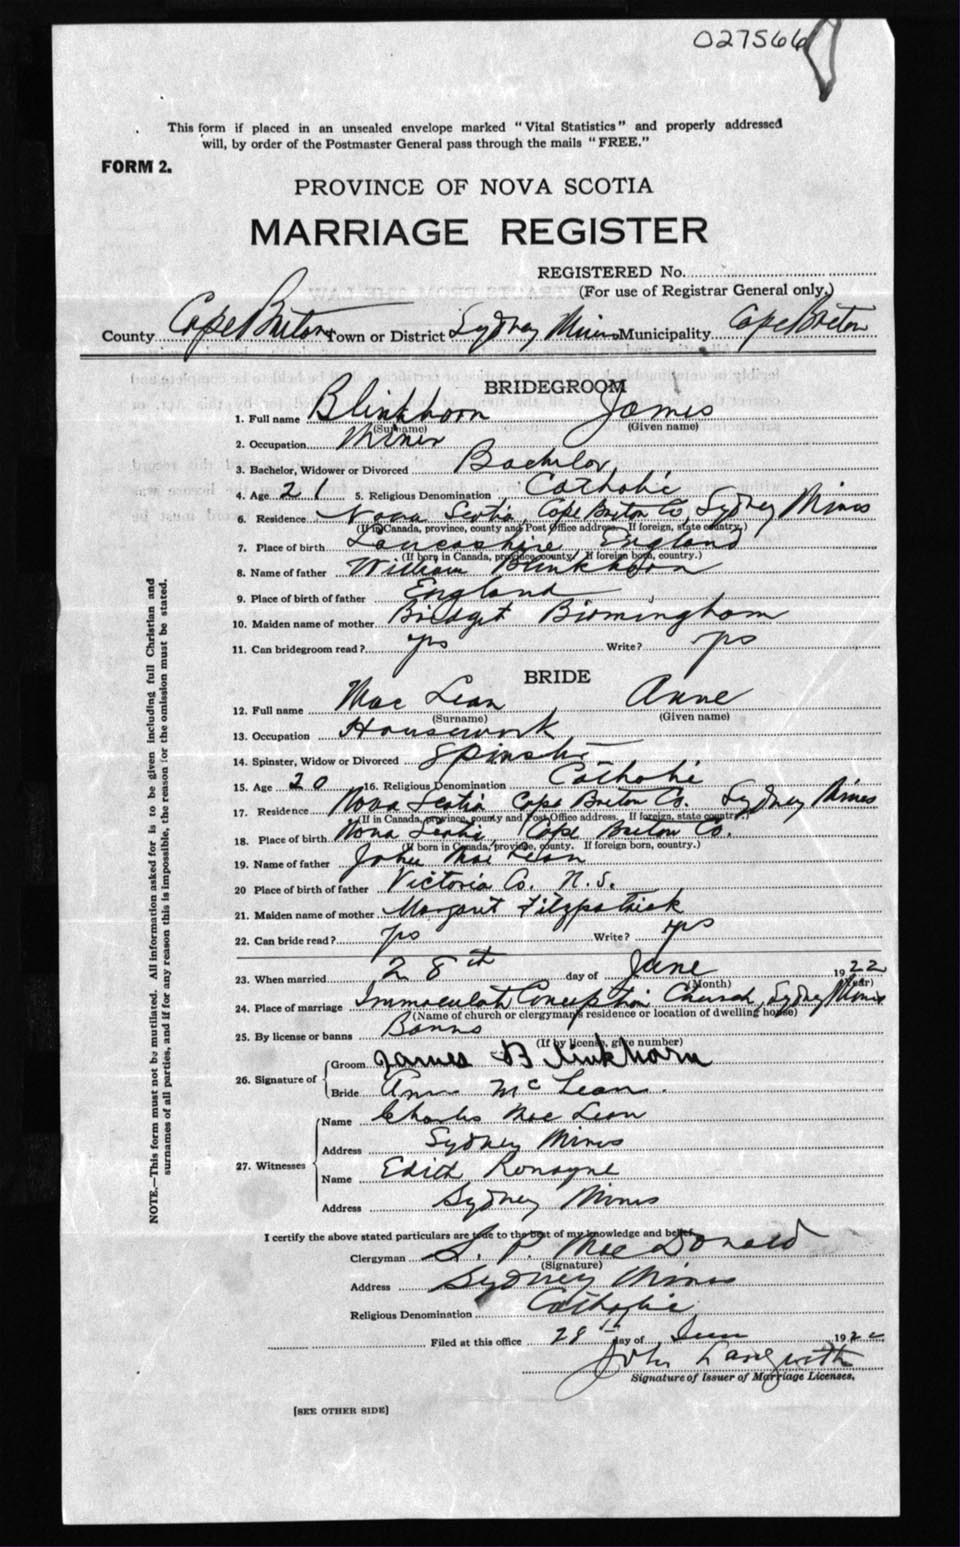 027566
This form if placed in an unsealed envelope marked "Vital Statistics" and properly addressed
will, by order of the Postmaster General pass through the mails "FREE."
FORM 2.
PROVINCE OF NOVA SCOTIA
MARRIAGE REGISTER
REGISTERED No.
(For use of Registrar General only.)
County Cape Breton Town or District Sydney Mines Municipality Cape Breton
BRIDEGROOM
1. Full name Blinkhorn James
(Surname) (Given name)
2. Occupation Miner
3. Bachelor, Widower or Divorced Bachelor
4. Age 21 5. Religious Denomination Catholic
6. Residence Nova Scotia, Cape Breton Co, Sydney Mines
(If in Canada, province, county and Post Office address. If foreign, state country.)
7. Place of birth Lancashire England
(If born in Canada, province, county. If foreign born, country.)
8. Name of father William Blinkhorn
9. Place of birth of father England
10. Maiden name of mother Bridget Birmingham
11. Can bridegroom read? yes Write? yes
BRIDE
12. Full name Mac Lean Anne
(Surname) (Given name)
13. Occupation Housework
14. Spinster, Widow or Divorced Spinster
15. Age 20 16. Religious Denomination Catholic
17. Residence Nova Scotia Cape Breton Co. Sydney Mines
(If in Canada, province, county and Post Office address. If foreign, state country.)
18. Place of birth Nova Scotia Cape Breton Co.
(If born in Canada, province, county. If foreign born, country.)
19. Name of father John Mac Lean
20 Place of birth of father Victoria Co. N.S.
21. Maiden name of mother Margaret Fitzpatrick
22. Can bride read? yes Write? yes
23. When married 28th day of June 1922
(Month) (Year)
24. Place of marriage Immaculate Conception Church, Sydney Mines
(Name of church or clergyman's residence or location of dwelling house)
25. By license or banns Banns
(If by license, give number)
26. Signature of Groom James Blinkhorn
Bride Ann Mc Lean.
27. Witnesses Name Charles Mac Lean
Address Sydney Mines
Name Edith Ronayne
Address Sydney Mines
I certify the above stated particulars are true to the best of my knowledge and belief.
Clergyman S. P. MacDonald
(Signature)
Address Sydney Mines
Religious Denomination Catholic
Filed at this office 28th day of June 1922
John
Signature of Issuer of Marriage Licenses.
[SEE OTHER SIDE]
NOTE.—This form must not be mutilated. All information asked for is to be given including full Christian and
surnames of all parties, and if for any reason this is impossible, the reason for the omission must be stated.